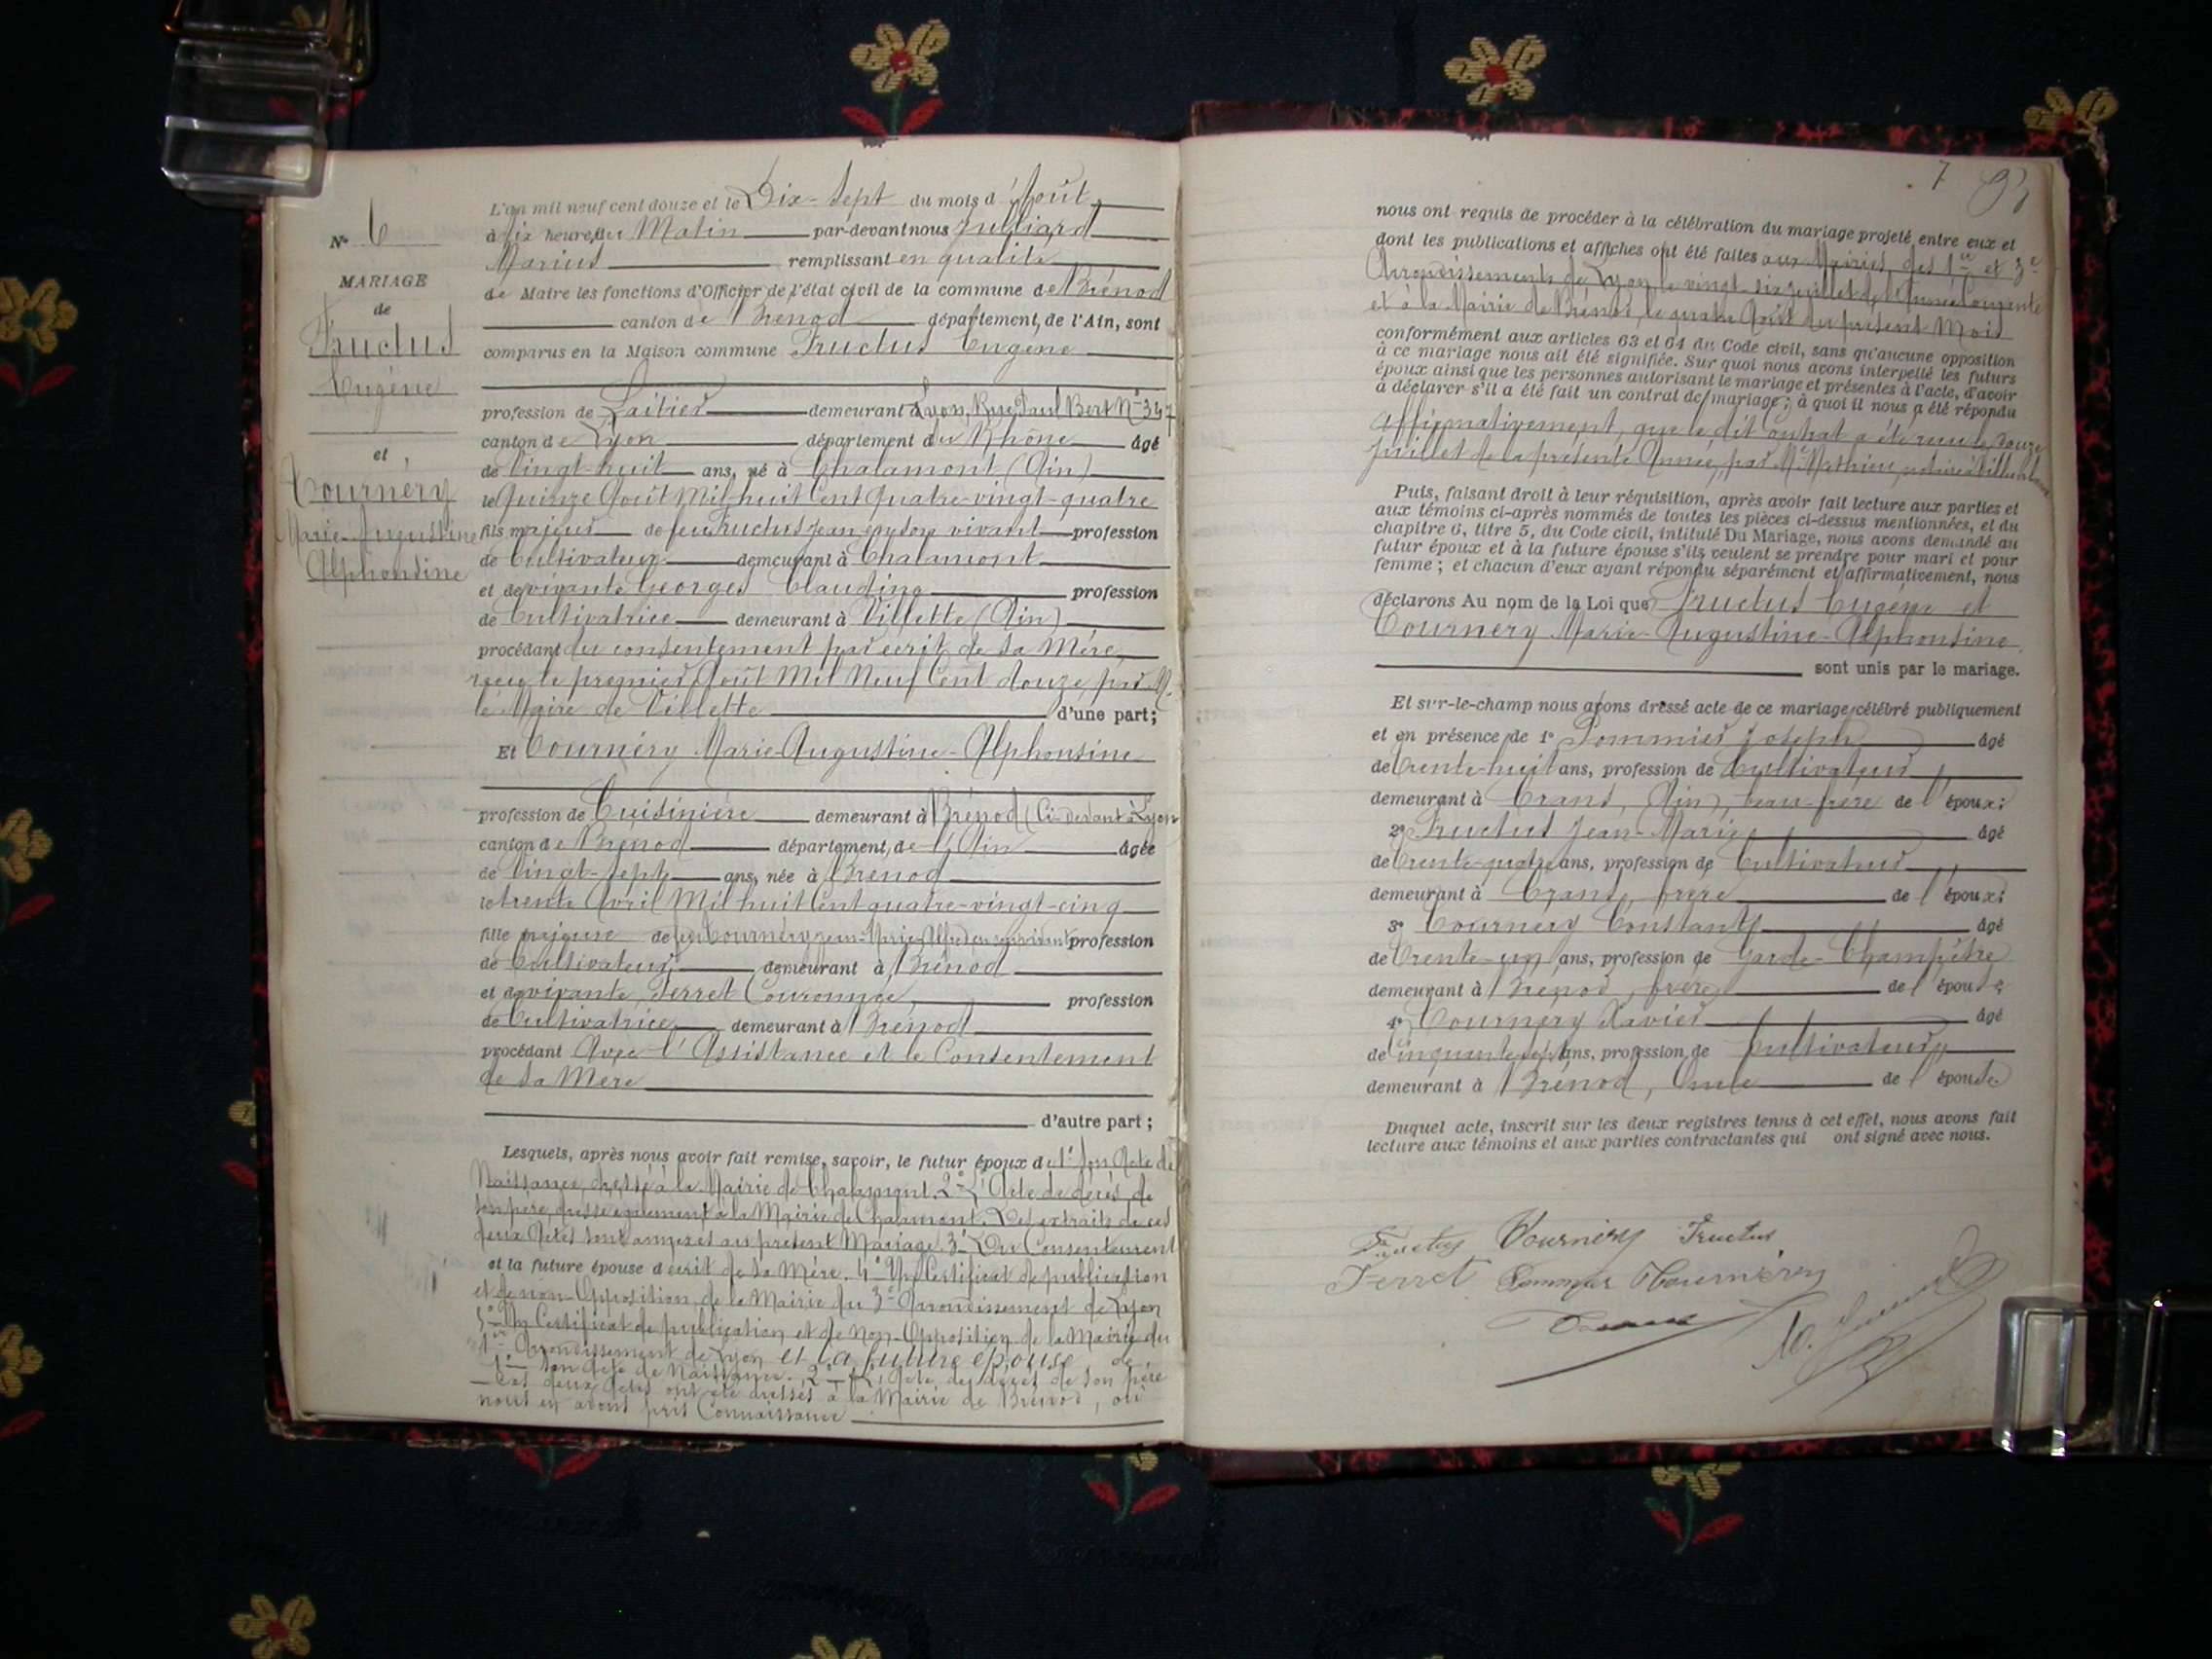 N° 6
MARIAGE
de
Fructus
Eugène
et
Tournéry
Marie-Augustine
Alphonsine
L'an mil neuf cent douze et le Dix-Sept du mois d'Août
à dix heures du Matin par-devant nous Julliard
Marius remplissant en qualité
de Maire les fonctions d'Officier de l'état civil de la commune de Brénod
canton de Brénod département de l'Ain, sont
comparus en la Maison commune Fructus Eugène
profession de Laitier demeurant à Lyon, Rue Paul Bert N° 347
canton de Lyon département du Rhône âgé
de Vingt-huit ans, né à Chalamont (Ain)
le Quinze Août Mil-huit Cent Quatre-vingt-quatre
fils majeur de feu Fructus Jean en son vivant profession
de Cultivateur demeurant à Chalamont
et de vivante Georges Claudine profession
de Cultivatrice demeurant à Villette (Ain)
procédant du consentement par écrit de sa Mère,
reçu le premier Août Mil Neuf Cent douze, par M.
le Maire de Villette d'une part;
Et Tournéry Marie-Augustine-Alphonsine
profession de Cuisinière demeurant à Brénod (Ci-devant à Lyon
canton de Brénod département, de l'Ain âgée
de Vingt-sept ans, née à Brénod
le trente Avril Mil huit Cent quatre-vingt-cinq
fille majeure de feu Tournéry Jean-Marie-Alfred en son vivant profession
de Cultivateur demeurant à Brénod
et de vivante Ferret Couronnée, profession
de Cultivatrice demeurant à Brénod
procédant Avec l'Assistance et le Consentement
de sa Mère
d'autre part;
Lesquels, après nous avoir fait remise, savoir, le futur époux de 1° Son Acte de
Naissance, dressé à la Mairie de Chalamont. 2° L'Acte de décès de
son père, dressé également à la Mairie de Chalamont. Les extraits de ces
deux Actes sont annexés au présent Mariage. 3° Du Consentement
et la future épouse d écrit de sa Mère. 4° Un Certificat de publication
et de non-Opposition de la Mairie du 3e Arrondissement de Lyon
5° Un Certificat de publication et de Non-Opposition de la Mairie du
1er Arrondissement de Lyon et la future épouse, de
1° Son Acte de Naissance. 2° L'Acte de décès de son père
Ces deux Actes ont été dressés à la Mairie de Brénod, où
nous en avons pris Connaissance
7
nous ont requis de procéder à la célébration du mariage projeté entre eux et
dont les publications et affiches ont été faites aux Mairies des 1er et 3e
Arrondissements de Lyon le vingt-six juillet de l'Année Courante
et à la Mairie de Brénod, le quatre Août du présent Mois
conformément aux articles 63 et 64 du Code civil, sans qu'aucune opposition
à ce mariage nous ait été signifiée. Sur quoi nous avons interpellé les futurs
époux ainsi que les personnes autorisant le mariage et présentes à l'acte, d'avoir
à déclarer s'il a été fait un contrat de mariage; à quoi il nous a été répondu
affirmativement, que le dit contrat a été reçu le douze
juillet de la présente Année, par Me Mathieu, notaire à Villeurbanne
Puis, faisant droit à leur réquisition, après avoir fait lecture aux parties et
aux témoins ci-après nommés de toutes les pièces ci-dessus mentionnées, et du
chapitre 6, titre 5, du Code civil, intitulé Du Mariage, nous avons demandé au
futur époux et à la future épouse s'ils veulent se prendre pour mari et pour
femme; et chacun d'eux ayant répondu séparément et affirmativement, nous
déclarons Au nom de la Loi que Fructus Eugène et
Tournéry Marie-Augustine-Alphonsine
sont unis par le mariage.
Et sur-le-champ nous avons dressé acte de ce mariage célébré publiquement
et en présence de 1° Pommier Joseph âgé
de Trente-huit ans, profession de Cultivateur
demeurant à Crans, (Ain), beau-frère de l'époux;
2° Fructus Jean-Marie âgé
de Trente-quatre ans, profession de Cultivateur
demeurant à Crans, frère de l'époux;
3° Tournéry Constant âgé
de Trente-un ans, profession de Garde-Champêtre
demeurant à Brénod, frère de l'épouse
4° Tournéry Xavier âgé
de cinquante-sept ans, profession de Cultivateur
demeurant à Brénod, Oncle de l'épouse
Duquel acte, inscrit sur les deux registres tenus à cet effet, nous avons fait
lecture aux témoins et aux parties contractantes qui ont signé avec nous.
Fructus Tournéry Fructus
Ferret Pommier Tournéry